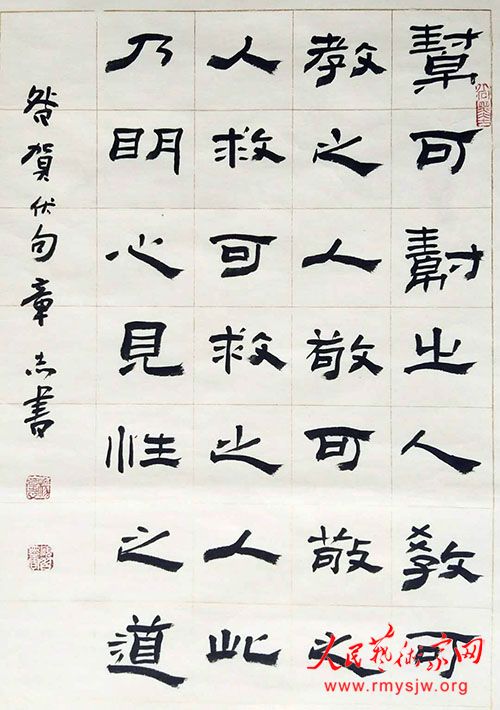 幫可幫之人教可
教之人敬可敬之
人救可救之人此
乃明心見性之道
賀伏句章志書
人民藝術家网
www.rmysjw.org